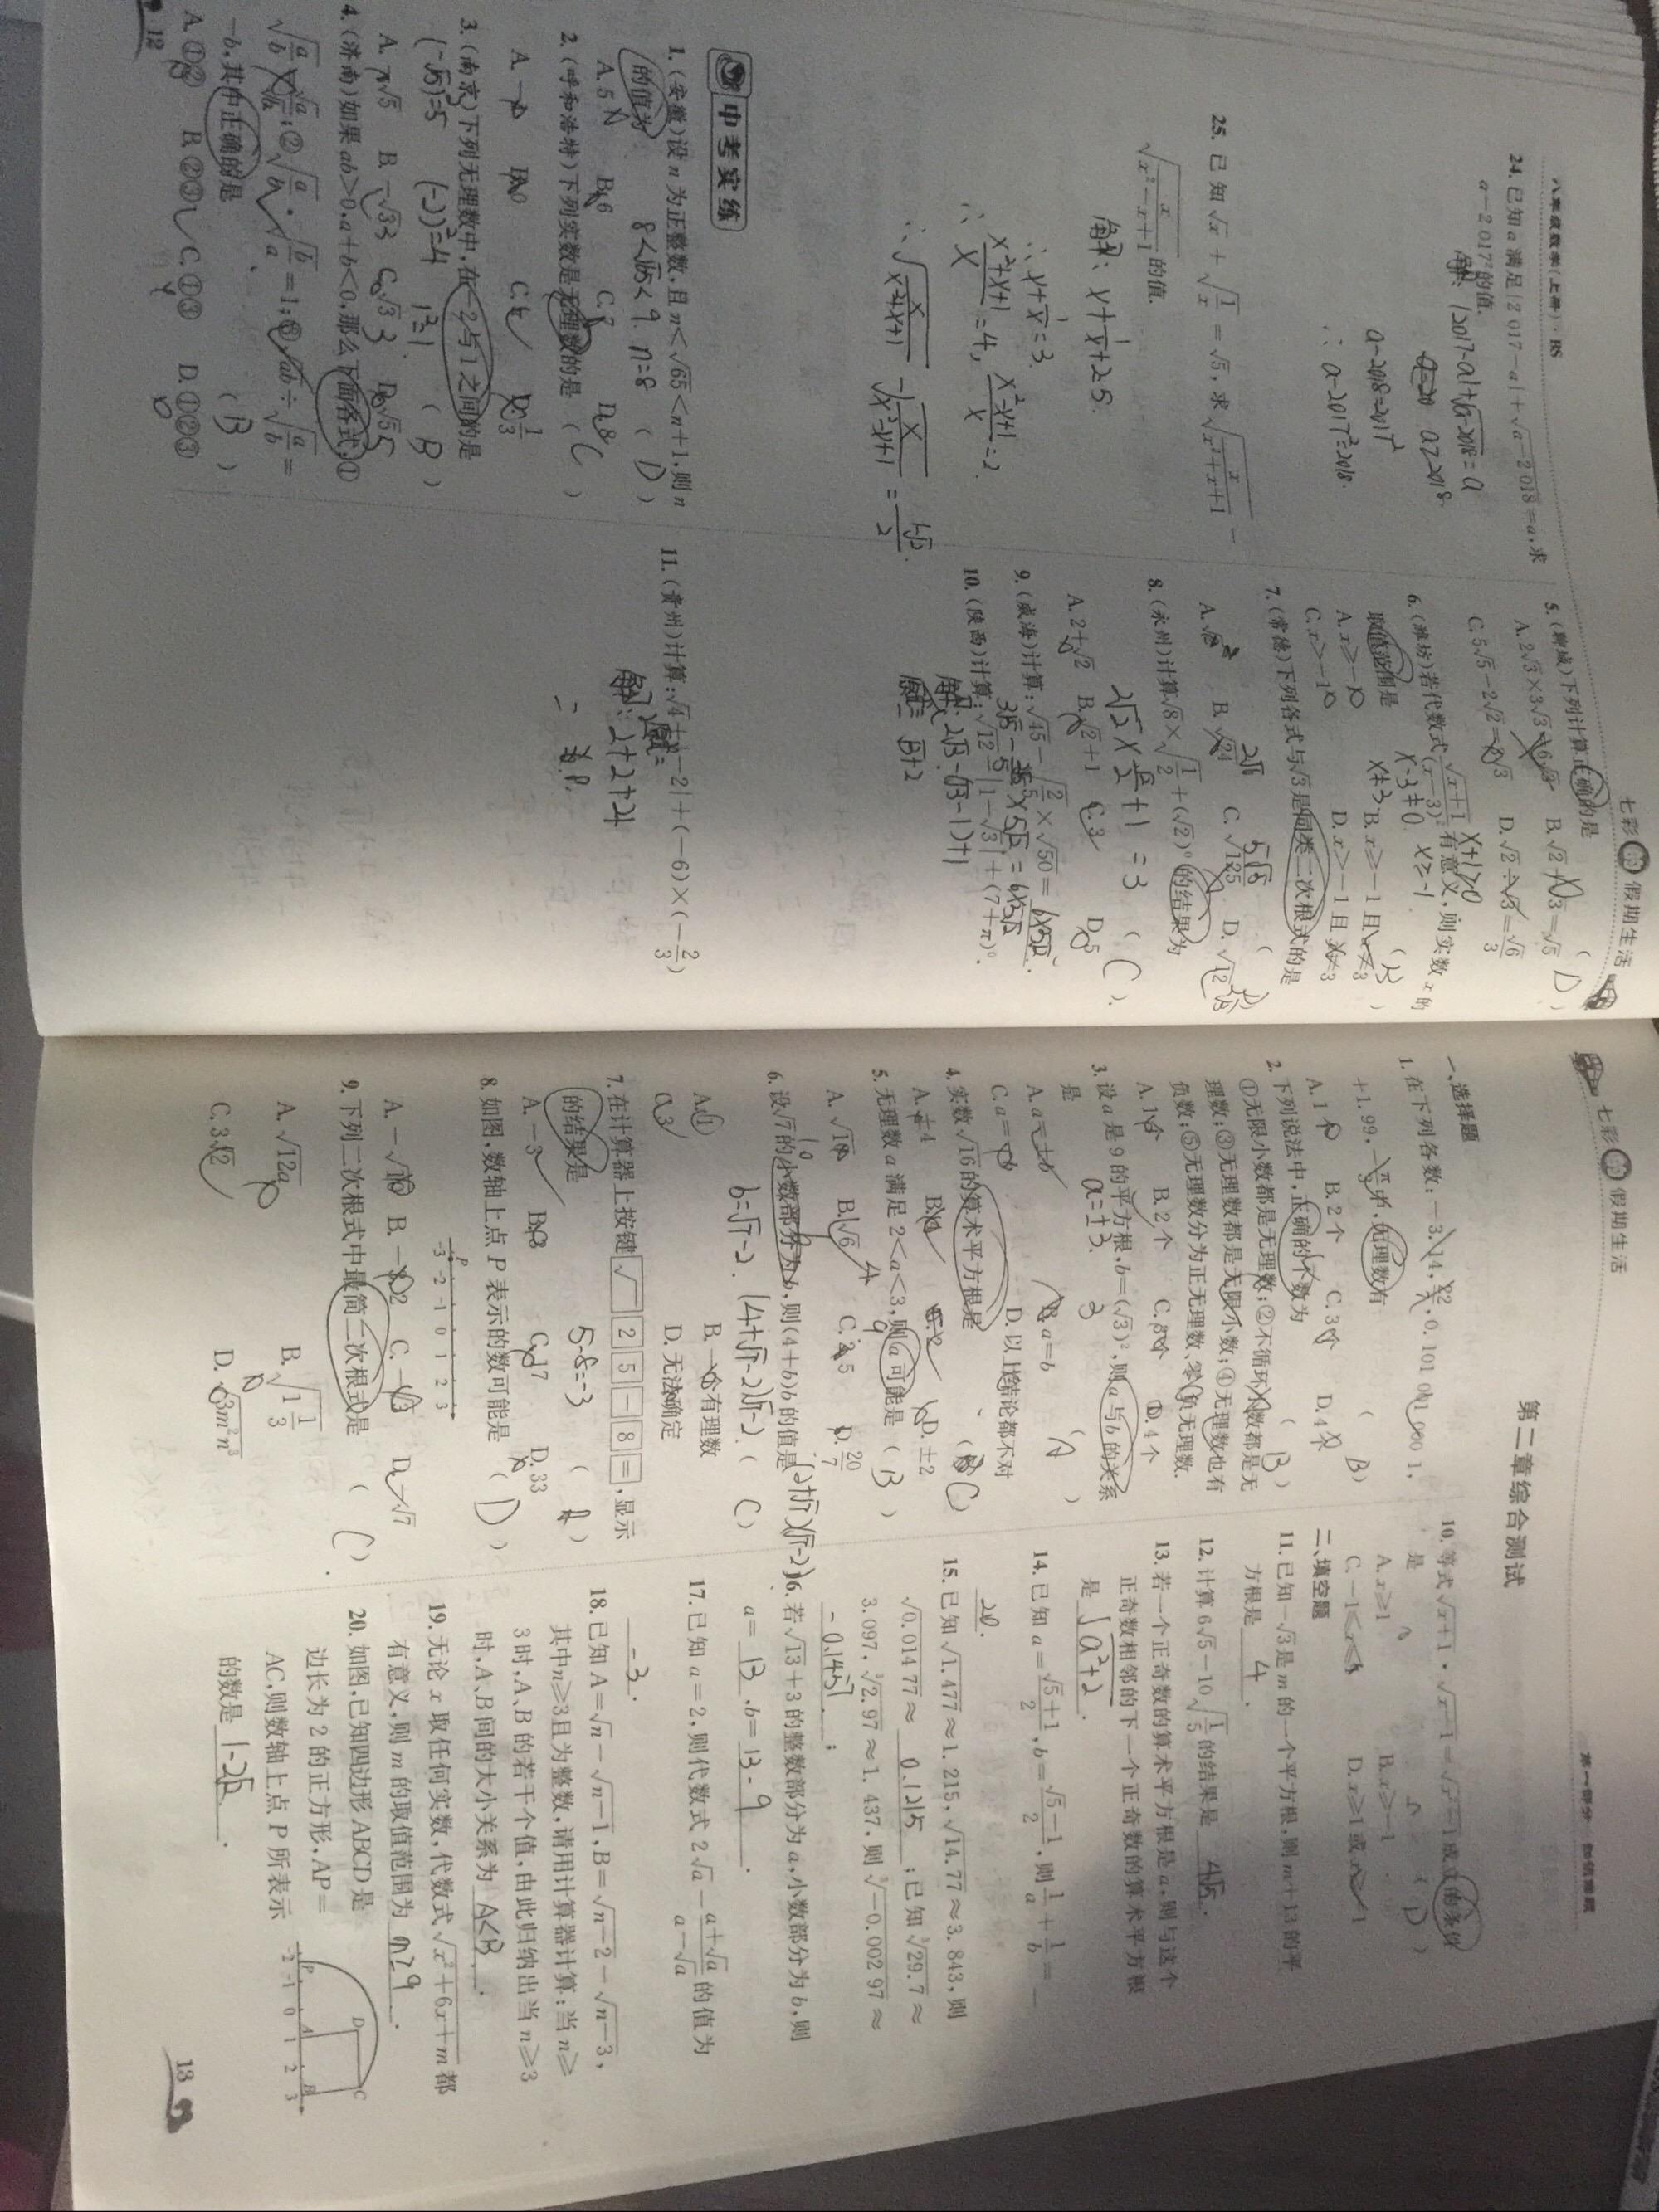 八年级数学(上册)·BS
24. 已知 a 满足|2 017-a|+√(a-2 018)=a,求
a-2 017²的值.
解: |2017-a|+√(a-2018)=a
a≥2018
a-2018=2017²
∴ a-2017²=2018.
25. 已知 √x+√(1/x)=√5,求√(x/(x²+x+1))-
√(x/(x²-x+1))的值.
解: x+1/x+2=5.
∴ x+1/x=3.
∴ (x²+x+1)/x=4, (x²-x+1)/x=2.
∴ √(x/(x²+x+1))-√(x/(x²-x+1))=
中考实练
1. (安徽)设 n 为正整数,且 n<√65<n+1,则 n
的值为 (D)
A. 5 B. 6 C. 7 D. 8
8<√65<9. n=8
2. (呼和浩特)下列实数是无理数的是 (C)
A. -1 B. 0 C. π D. 1/3
3. (南京)下列无理数中,在-2与1之间的是
(B)
(-√5)²=5 (-2)²=4 1²=1
A. -√5 B. -√3 C. √3 D. √5
4. (济南)如果 ab>0,a+b<0,那么下面各式:①
√(a/b)=√a/√b;②√(a/b)·√(b/a)=1;③√(ab)÷√(a/b)=
-b,其中正确的是 (B)
A. ①② B. ②③ C. ①③ D. ①②③
12
七彩的假期生活
5. (聊城)下列计算正确的是 (D)
A. 2√3×3√3=6√3 B. √2+√3=√5
C. 5√5-2√2=3√3 D. √2÷√3=√6/3
6. (潍坊)若代数式√(x+1)/(x-3)²有意义,则实数 x 的
取值范围是 (B)
x+1≥0 x-3≠0 x≥-1
x≠3
A. x≥-1 B. x≥-1且x≠3
C. x>-1 D. x>-1且x≠3
7. (常德)下列各式与√3是同类二次根式的是
A. √8 B. √24 C. √125 D. √12
2√6 5√5 2√3
8. (永州)计算√8×√(1/2)+(√2)⁰的结果为
(C)
2√2×√2/2+1=3
A. 2+√2 B. √2+1 C. 3 D. 5
9. (威海)计算:√45-√(2/5)×√50=
10. (陕西)计算:√12-|1-√3|+(7+π)⁰.
解: 2√3-(√3-1)+1
原式=√3+2
11. (贵州)计算:√4+|-2|+(-6)×(-2/3)
解: 2+2+4
=8.
七彩的假期生活
第一部分
第二章综合测试
一、选择题
1. 在下列各数:-3.14,22/7,0.101 001 000 1,
+1.99,-π/3中,无理数有 (B)
A. 1个 B. 2个 C. 3个 D. 4个
2. 下列说法中,正确的个数为 (B)
①无限小数都是无理数;②不循环小数都是无
理数;③无理数都是无限小数;④无理数也有
负数;⑤无理数分为正无理数、零、负无理数.
A. 1个 B. 2个 C. 3个 D. 4个
3. 设 a 是 9 的平方根,b=(√3)²,则 a 与 b 的关系
是 (A)
a=±3. 3
A. a=±b B. a=b
C. a=-b D. 以上结论都不对
4. 实数√16的算术平方根是 (C)
A. ±4 B. 4 C. 2 D. ±2
5. 无理数 a 满足 2<a<3,则 a 可能是 (B)
A. √10 B. √6 C. 2.5 D. 20/7
6. 设√7的小数部分为 b,则(4+b)b 的值是
(C)
b=√7-2. (4+√7-2)(√7-2) (2+√7)(√7-2)
A. 1 B. 一个有理数
C. 3 D. 无法确定
7. 在计算器上按键√ 2 5 - 8 =,显示
的结果是 (A)
5-8=-3
A. -3 B. 3 C. 17 D. 33
8. 如图,数轴上点 P 表示的数可能是 (D)
P
-3 -2 -1 0 1 2 3
A. -√10 B. -3.2 C. -√3 D. -√7
9. 下列二次根式中最简二次根式是 (C)
A. √(12a) B. √(1 1/3)
C. 3√2 D. √(3m²n³)
10. 等式√(x+1)·√(x-1)=√(x²-1)成立的条件
是 (D)
A. x≥1 B. x≥-1
D. x≥1或x≤-1
二、填空题
11. 已知-√3是 m 的一个平方根,则 m+13 的平
方根是 4 .
12. 计算 6√5-10√(1/5)的结果是 4√5 .
13. 若一个正奇数的算术平方根是 a,则与这个
正奇数相邻的下一个正奇数的算术平方根
是 √(a²+2) .
14. 已知 a=(√5+1)/2,b=(√5-1)/2,则 1/a+1/b=
15. 已知√1.477≈1.215,√14.77≈3.843,则
√0.014 77≈ 0.1215 ;已知 ∛29.7≈
3.097,∛2.97≈1.437,则 ∛-0.002 97≈
-0.1437 ;
16. 若√13+3 的整数部分为 a,小数部分为 b,则
a= 13 ,b= 13-9 .
17. 已知 a=2,则代数式 2√a-(a+√a)/(a-√a)的值为
-3 .
18. 已知 A=√n-√(n-1),B=√(n-2)-√(n-3),
其中 n≥3 且为整数,请用计算器计算:当 n≥
3 时,A、B 的若干个值,由此归纳出当 n≥3
时,A、B 间的大小关系为 A<B .
19. 无论 x 取任何实数,代数式√(x²+6x+m)都
有意义,则 m 的取值范围为 m≥9 .
20. 如图,已知四边形 ABCD 是
边长为 2 的正方形,AP=
AC,则数轴上点 P 所表示
的数是 1-2√2 .
D C
P A B
-2 -1 0 1 2 3
13